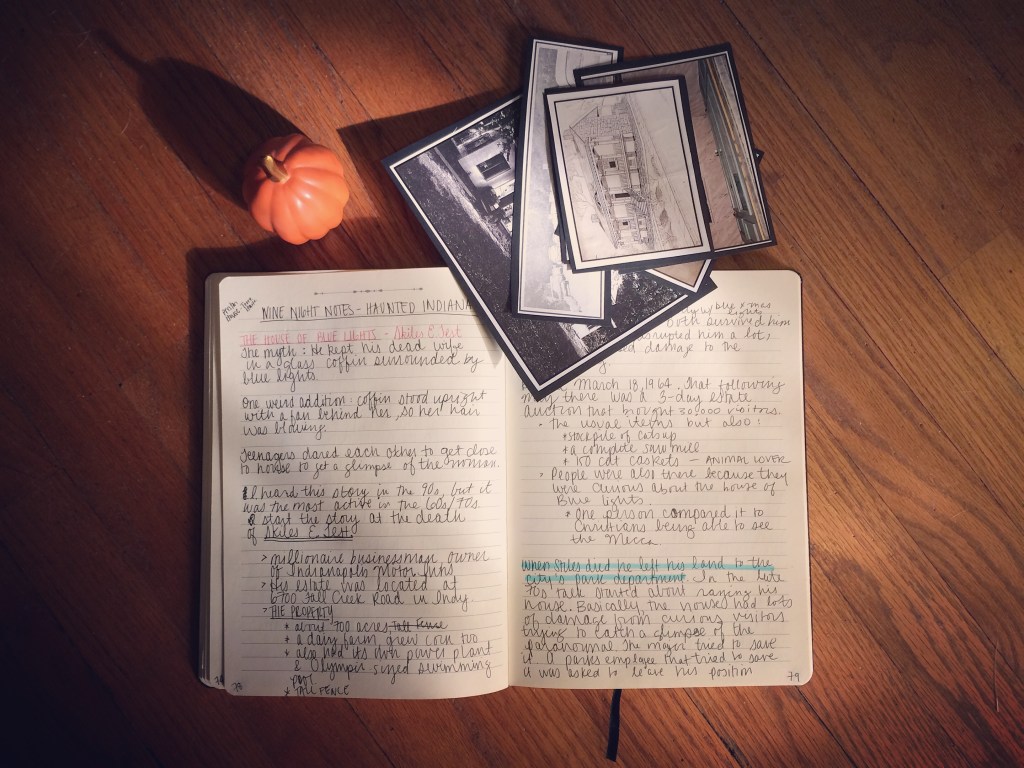 WINE NIGHT NOTES - HAUNTED INDIANA
THE HOUSE OF BLUE LIGHTS - Skiles E. Test
The myth: He kept his dead wife
in a glass coffin surrounded by
blue lights.
One weird addition: coffin stood upright
with a fan behind her, so her hair
was blowing.
Teenagers dared each other to get close
to house to get a glimpse of the woman.
I heard this story in the 90s, but it
was the most active in the 60s/70s.
& start the story at the death
of Skiles E. Test!
> millionaire businessman, owner
of Indianapolis Motor Inns
> His estate was located at
6700 Fall Creek Road in Indy.
> THE PROPERTY
+ about 700 acres Tall Fence
+ a dairy farm, grew corn too
+ also had its own power plant
& Olympic-sized swimming
pool
+ TALL FENCE
78
both survived him
disrupted him a lot,
damage to the
March 18, 1964. That following
may there was a 3-day estate
auction that brought 30,000 visitors.
- The usual items but also:
+ stockpile of catsup
+ a complete sawmill
+ 150 cat caskets - ANIMAL LOVER
- People were also there because they
were curious about the house of
Blue lights
+ One person compared it to
Christians being able to see
the Mecca
When Skiles died he left his land to the
city's park department. In the late
70s talk started about razing his
house. Basically, the house had lots
of damage from curious visitors
trying to catch a glimpse of the
paranormal. The mayor tried to save
it. A parks employee that tried to save
it was asked to leave his position
79